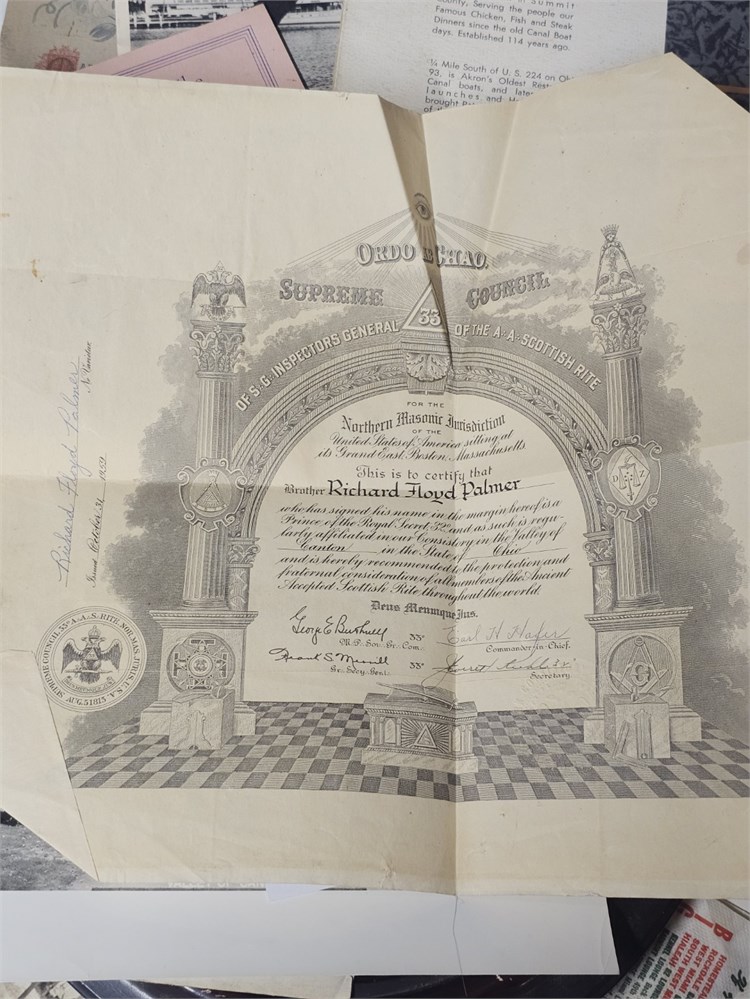 County, Serving the people our
Famous Chicken, Fish and Steak
Dinners since the old Canal Boat
days. Established 114 years ago.
¼ Mile South of U. S. 224 on
93, is Akron's Oldest
Canal boats, and
launches, and
brought
ORDO AB CHAO.
SUPREME COUNCIL
33
OF S. G. INSPECTORS GENERAL OF THE A∴A∴SCOTTISH RITE
FOR THE
Northern Masonic Jurisdiction
OF THE
United States of America sitting at
its Grand East, Boston, Massachusetts.
This is to certify that
Brother Richard Floyd Palmer
who has signed his name in the margin hereof is a
Prince of the Royal Secret 32° and as such is regu-
larly affiliated in our Consistory in the Valley of
Canton in the State of Ohio
and is hereby recommended to the protection and
fraternal consideration of all members of the Ancient
Accepted Scottish Rite throughout the world.
Deus Meumque Jus.
George E Bushnell 33°
M∴P∴Sov∴Gr∴Com∴
Earl H Hafer
Commander-in-Chief.
Frank S. Merrill 33°
Gr∴Secy∴Genl∴
Secretary.
Richard Floyd Palmer
Ne Varietur
Issued October 31 1952
SUPREME COUNCIL 33° A∴A∴S∴RITE, NOR.MAS.JURIS. U.S.A.
AUG. 5 1813
D Z
G
HOMESTEAD
ROCKDALE
WEST MIAMI
SOUTH
HIALEAH